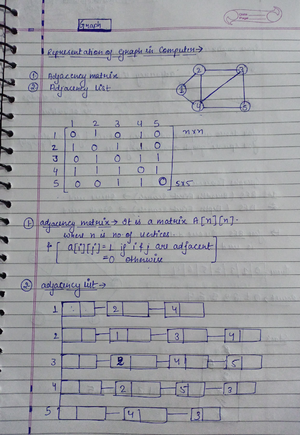 Graph
Representation of Graph in Computer→
① Adjacency matrix
② Adjacency list
1 2 3 4 5
1 0 1 0 1 0
2 1 0 1 1 0
3 0 1 0 1 1
4 1 1 1 0 1
5 0 0 1 1 0
n×n
5×5
① adjacency matrix → It is a matrix A[n][n].
where n is no of vertices.
a[i][j] = 1 if i & j are adjacent
= 0 otherwise
② adjacency list →
1 2 4
2 1 3 4
3 2 4 5
4 2 5 3
5 4 3